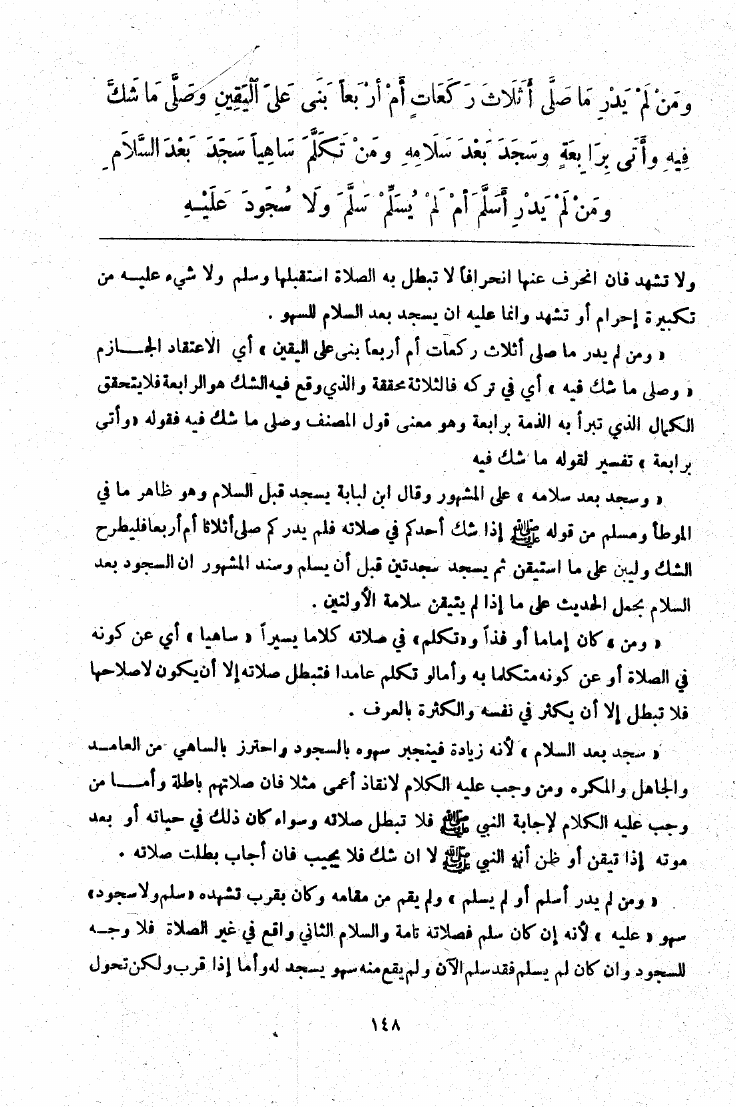 وَمَنْ لَمْ يَدْرِ مَا صَلَّى أَثَلَاثَ رَكَعَاتٍ أَمْ أَرْبَعاً بَنَى عَلَى ٱلْيَقِينِ وَصَلَّى مَا شَكَّ
فِيهِ وَأَتَى بِرَابِعَةٍ وَسَجَدَ بَعْدَ سَلَامِهِ وَمَنْ تَكَلَّمَ سَاهِياً سَجَدَ بَعْدَ السَّلَامِ
وَمَنْ لَمْ يَدْرِ أَسَلَّمَ أَمْ لَمْ يُسَلِّمْ سَلَّمَ وَلَا سُجُودَ عَلَيْهِ
ولا تشهد فان انحرف عنها انحرافاً لا تبطل به الصلاة استقبلها وسلم ولا شيء عليه من
تكبيرة إحرام أو تشهد وانما عليه ان يسجد بعد السلام للسهو .
« ومن لم يدر ما صلى أثلاث ركعات أم أربعاً بنى على اليقين » أي الاعتقاد الجازم
« وصلى ما شك فيه » أي في تركه فالثلاثة محققة والذي وقع فيه الشك هو الرابعة فلا يتحقق
الكمال الذي تبرأ به الذمة برابعة وهو معنى قول المصنف وصلى ما شك فيه فقوله «وأتى
برابعة » تفسير لقوله ما شك فيه
« وسجد بعد سلامه » على المشهور وقال ابن لبابة يسجد قبل السلام وهو ظاهر ما في
الموطأ ومسلم من قوله ﷺ إذا شك أحدكم في صلاته فلم يدر كم صلى أثلاثا أم أربعا فليطرح
الشك وليبن على ما استيقن ثم يسجد سجدتين قبل أن يسلم وسند المشهور ان السجود بعد
السلام بحمل الحديث على ما إذا لم يتيقن سلامة الأولتين .
« ومن » كان إماما أو فذاً و«تكلم» في صلاته كلاما يسيراً « ساهيا » أي عن كونه
في الصلاة أو عن كونه متكلما به وأما لو تكلم عامدا فتبطل صلاته إلا أن يكون لاصلاحها
فلا تبطل إلا أن يكثر في نفسه والكثرة بالعرف .
« سجد بعد السلام » لأنه زيادة فينجبر سهوه بالسجود واحترز بالساهي من العامد
والجاهل والمكره ومن وجب عليه الكلام لانقاذ أعمى مثلا فان صلاتهم باطلة وأما من
وجب عليه الكلام لإجابة النبي ﷺ فلا تبطل صلاته وسواء كان ذلك في حياته أو بعد
موته إذا تيقن أو ظن أنه النبي ﷺ لا ان شك فلا يجيب فان أجاب بطلت صلاته .
« ومن لم يدر أسلم أو لم يسلم » ولم يقم من مقامه وكان بقرب تشهده «سلم ولا سجود»
سهو « عليه » لأنه إن كان سلم فصلاته تامة والسلام الثاني واقع في غير الصلاة فلا وجه
للسجود وان كان لم يسلم فقد سلم الآن ولم يقع منه سهو يسجد له وأما إذا قرب ولكن تحول
١٤٨